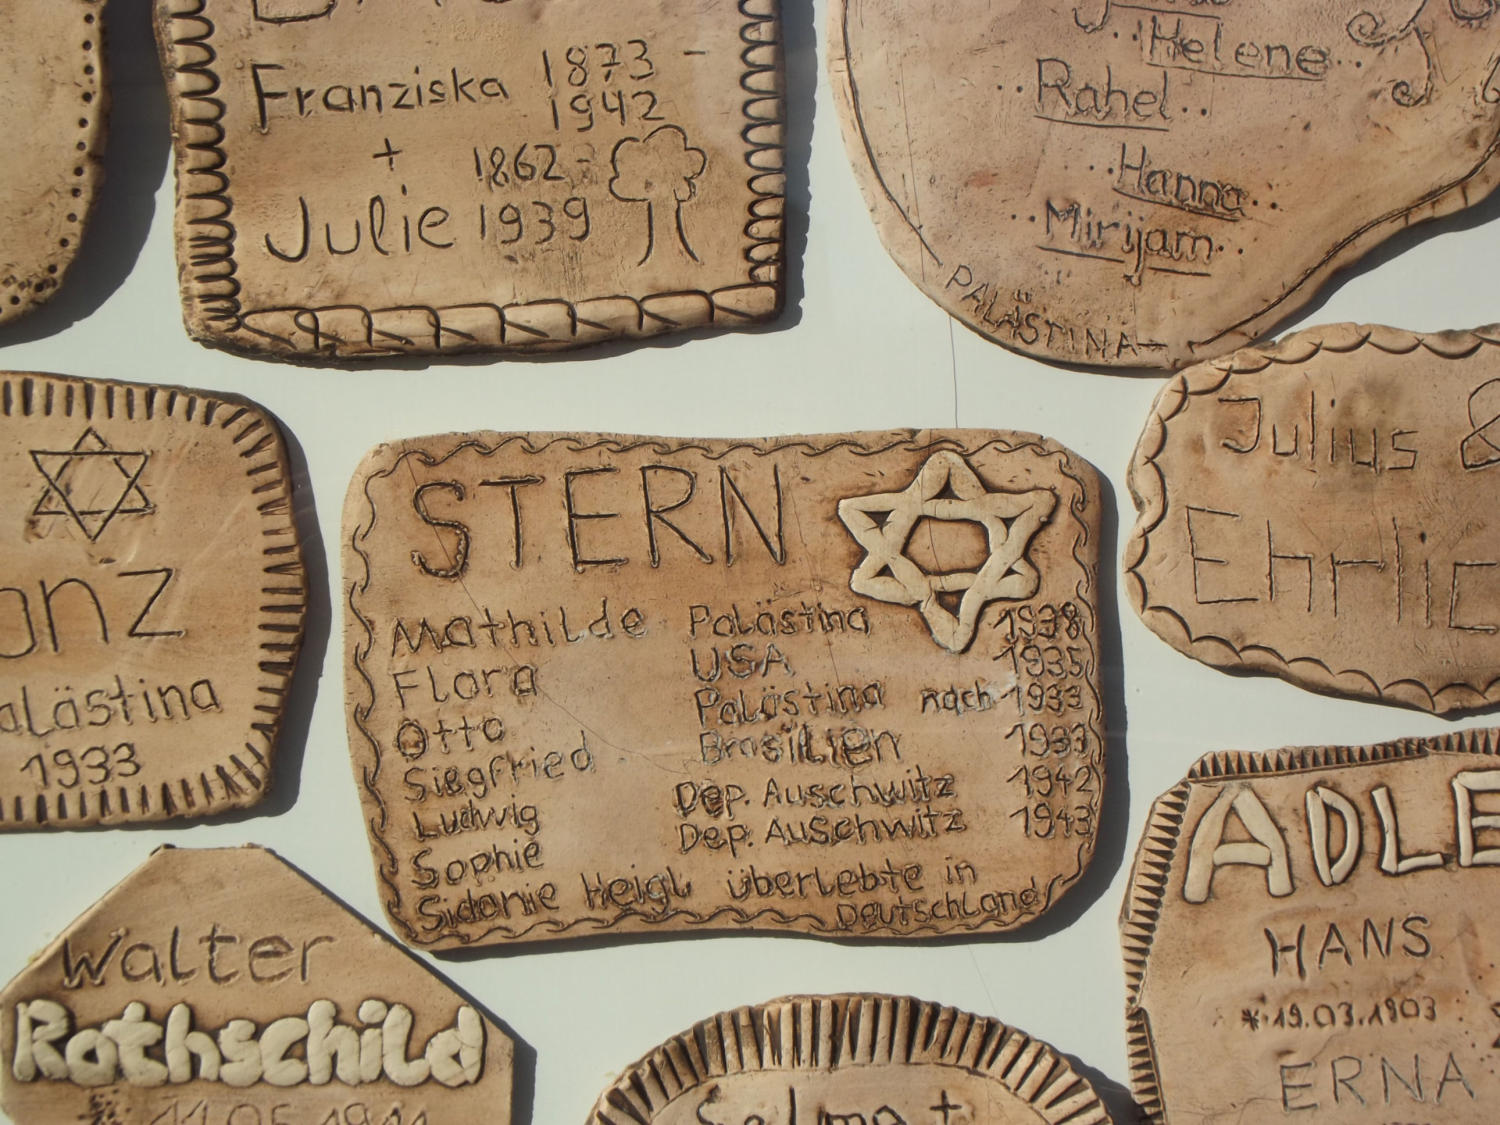 Franziska 1873 -
1942
+
Julie 1862 -
1939
Helene
Rahel
Hanna
Mirijam
PALÄSTINA
1933
STERN
Mathilde Palästina 1938
Flora USA 1935
Otto Palästina nach 1933
Siegfried Brasilien 1933
Ludwig Dep. Auschwitz 1942
Sophie Dep. Auschwitz 1943
Sidonie Heigl überlebte in
Deutschland
Julius &
Walter
Rothschild
HANS
*19.03.1903
ERNA